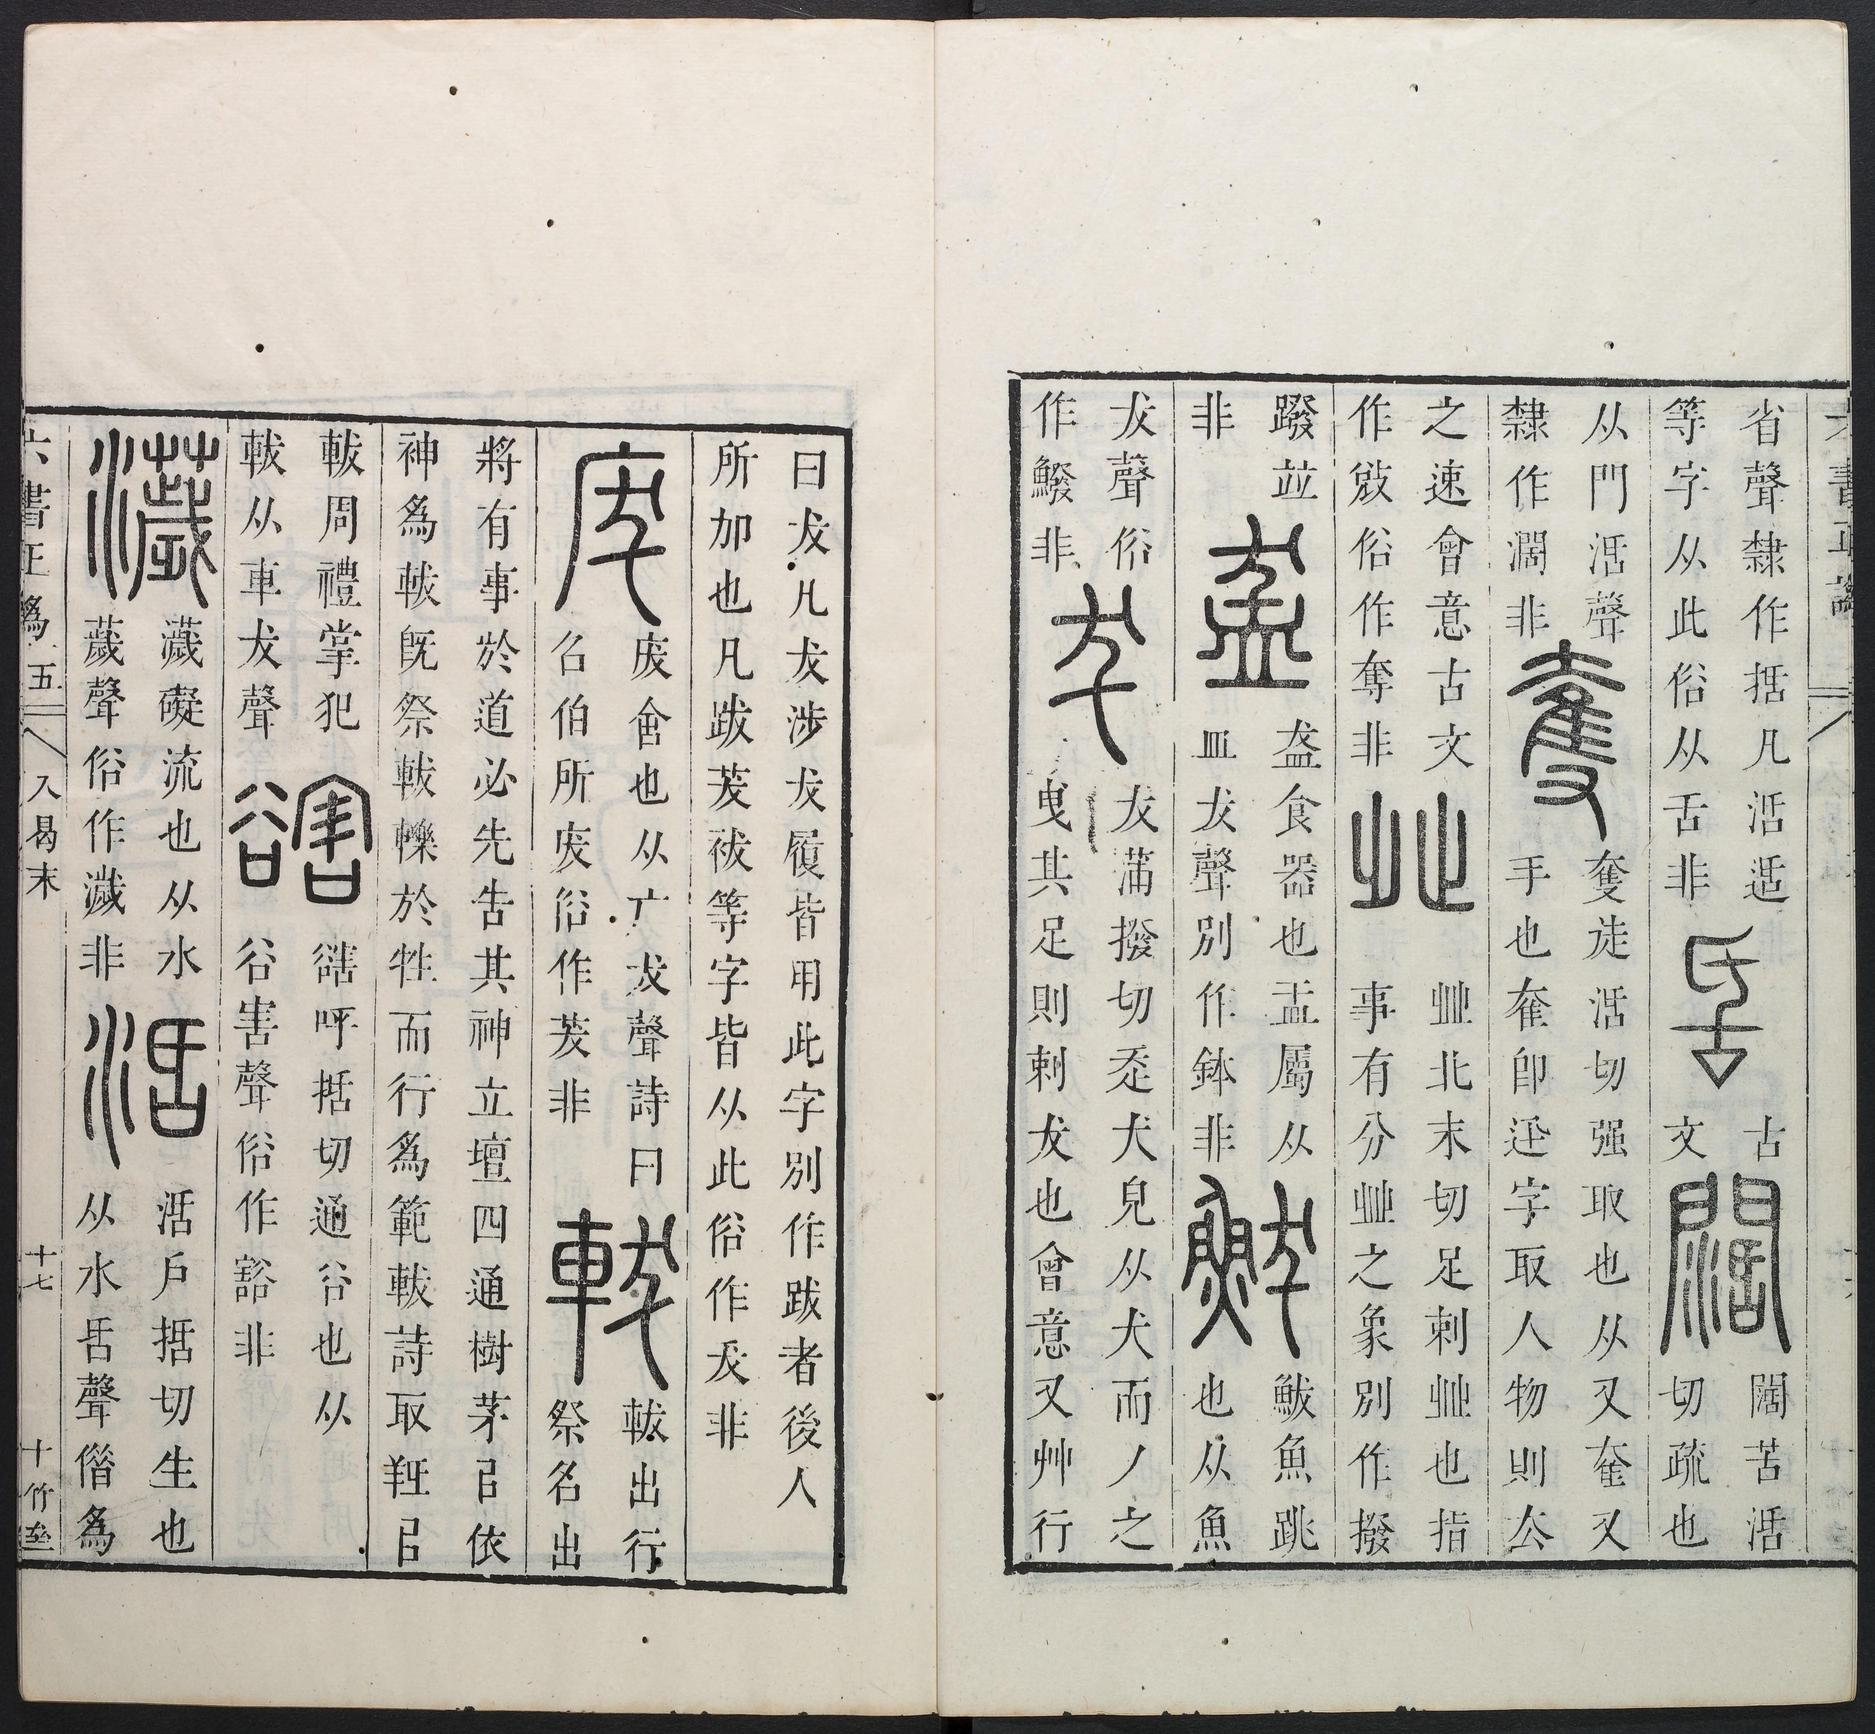 省聲隸作括凡活适
等字从此俗从舌非
𠯑
古
文
闊
闊苦活
切疏也
从門活聲
隸作濶非
奪
奪徒活切强取也从又奞又
手也奞卽迅字取人物則厺
之速會意古文
作敓俗作奪非
𣥠
𣥠北末切足剌𣥠也指
事有分𣥠之象別作撥
蹳並
非
盋
盋食器也盂屬从
皿犮聲別作鉢非
鮁
鮁魚跳
也从魚
犮聲俗
作鱍非
犮
犮蒲撥切犬皃从犬而丿之
曳其足則剌犮也會意又艸行
曰犮凡犮涉犮履皆用此字別作跋者後人
所加也凡跋茇祓等字皆从此俗作犮非
废
废舍也从广犮聲詩曰
召伯所废俗作茇非
軷
軷出行
祭名出
將有事於道必先告其神立壇四通樹茅㠯依
神爲軷旣祭軷轢於牲而行爲範軷詩取羝㠯
軷周禮掌犯
軷从車犮聲
𧯆
𧯆呼括切通谷也从
谷害聲俗作豁非
濊
濊礙流也从水
薉聲俗作濊非
活
活戶括切生也
从水𠯑聲僭爲
六書正譌 五 入曷末 十七 十竹齋